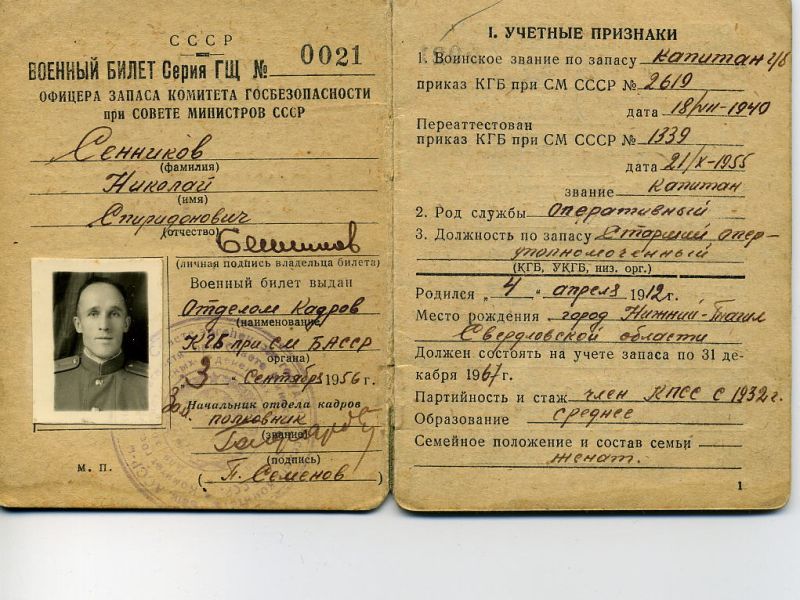 СССР
ВОЕННЫЙ БИЛЕТ Серия ГЩ № 0021
ОФИЦЕРА ЗАПАСА КОМИТЕТА ГОСБЕЗОПАСНОСТИ
при СОВЕТЕ МИНИСТРОВ СССР
Сенников
(фамилия)
Николай
(имя)
Спиридонович
(отчество)
(личная подпись владельца билета)
Военный билет выдан
Отделом Кадров
(наименование
КГБ при СМ БАССР
органа)
"3" сентября 1956 г.
Начальник отдела кадров
полковник
(звание)
(подпись)
(П. Семенов)
М. П.
I. УЧЕТНЫЕ ПРИЗНАКИ
1. Воинское звание по запасу капитан г/б
приказ КГБ при СМ СССР № 2619
дата 18/VII-1940
Переаттестован
приказ КГБ при СМ СССР № 1339
дата 21/X-1955
звание капитан
2. Род службы оперативный
3. Должность по запасу Старший опер-
уполномоченный
(КГБ, УКГБ, низ. орг.)
Родился "4" апреля 1912 г.
Место рождения город Нижний-Тагил
Свердловской области
Должен состоять на учете запаса по 31 де-
кабря 1967 г.
Партийность и стаж член КПСС с 1932 г.
Образование среднее
Семейное положение и состав семьи
женат.
1